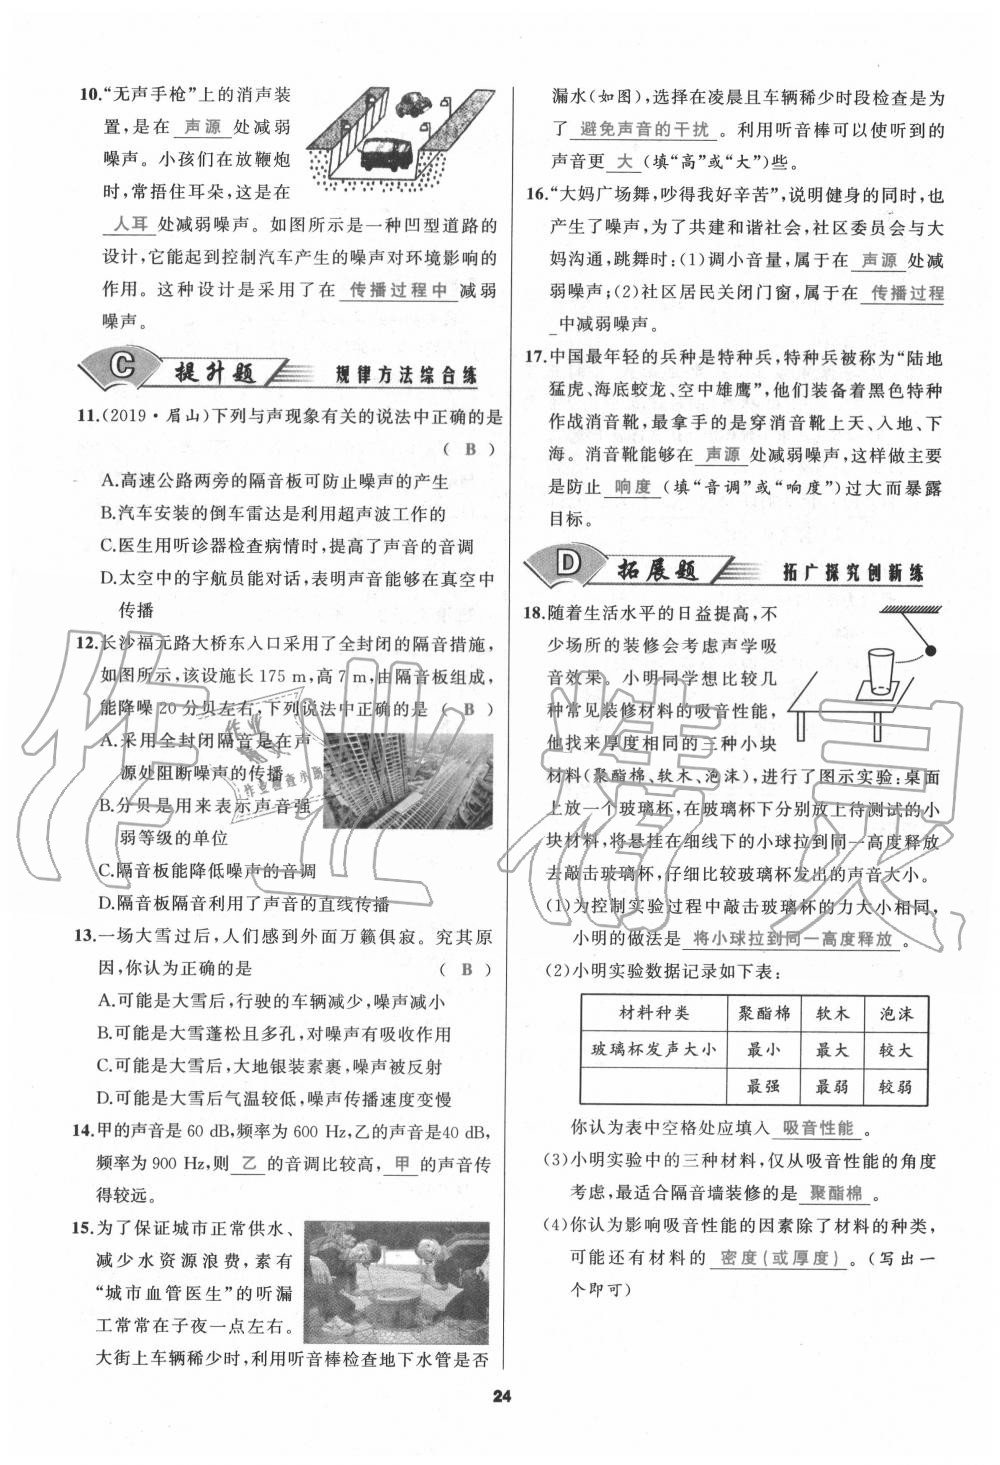 10.“无声手枪”上的消声装
置,是在 声源 处减弱
噪声。小孩们在放鞭炮
时,常捂住耳朵,这是在
人耳 处减弱噪声。如图所示是一种凹型道路的
设计,它能起到控制汽车产生的噪声对环境影响的
作用。这种设计是采用了在 传播过程中 减弱
噪声。
C 提升题 规律方法综合练
11.(2019·眉山)下列与声现象有关的说法中正确的是
( B )
A.高速公路两旁的隔音板可防止噪声的产生
B.汽车安装的倒车雷达是利用超声波工作的
C.医生用听诊器检查病情时,提高了声音的音调
D.太空中的宇航员能对话,表明声音能够在真空中
传播
12.长沙福元路大桥东入口采用了全封闭的隔音措施,
如图所示,该设施长 175 m,高 7 m,由隔音板组成,
能降噪 20 分贝左右,下列说法中正确的是 ( B )
A.采用全封闭隔音是在声
源处阻断噪声的传播
B.分贝是用来表示声音强
弱等级的单位
C.隔音板能降低噪声的音调
D.隔音板隔音利用了声音的直线传播
13.一场大雪过后,人们感到外面万籁俱寂。究其原
因,你认为正确的是 ( B )
A.可能是大雪后,行驶的车辆减少,噪声减小
B.可能是大雪蓬松且多孔,对噪声有吸收作用
C.可能是大雪后,大地银装素裹,噪声被反射
D.可能是大雪后气温较低,噪声传播速度变慢
14.甲的声音是 60 dB,频率为 600 Hz,乙的声音是40 dB,
频率为 900 Hz,则 乙 的音调比较高, 甲 的声音传
得较远。
15.为了保证城市正常供水、
减少水资源浪费,素有
“城市血管医生”的听漏
工常常在子夜一点左右。
大街上车辆稀少时,利用听音棒检查地下水管是否
漏水(如图),选择在凌晨且车辆稀少时段检查是为
了 避免声音的干扰 。利用听音棒可以使听到的
声音更 大 (填“高”或“大”)些。
16.“大妈广场舞,吵得我好辛苦”,说明健身的同时,也
产生了噪声,为了共建和谐社会,社区委员会与大
妈沟通,跳舞时:(1)调小音量,属于在 声源 处减
弱噪声;(2)社区居民关闭门窗,属于在 传播过程
中减弱噪声。
17.中国最年轻的兵种是特种兵,特种兵被称为“陆地
猛虎、海底蛟龙、空中雄鹰”,他们装备着黑色特种
作战消音靴,最拿手的是穿消音靴上天、入地、下
海。消音靴能够在 声源 处减弱噪声,这样做主要
是防止 响度 (填“音调”或“响度”)过大而暴露
目标。
D 拓展题 拓广探究创新练
18.随着生活水平的日益提高,不
少场所的装修会考虑声学吸
音效果。小明同学想比较几
种常见装修材料的吸音性能,
他找来厚度相同的三种小块
材料(聚酯棉、软木、泡沫),进行了图示实验:桌面
上放一个玻璃杯,在玻璃杯下分别放上待测试的小
块材料,将悬挂在细线下的小球拉到同一高度释放
去敲击玻璃杯,仔细比较玻璃杯发出的声音大小。
(1)为控制实验过程中敲击玻璃杯的力大小相同,
小明的做法是 将小球拉到同一高度释放 。
(2)小明实验数据记录如下表:
材料种类 聚酯棉 软木 泡沫
玻璃杯发声大小 最小 最大 较大
最强 最弱 较弱
你认为表中空格处应填入 吸音性能 。
(3)小明实验中的三种材料,仅从吸音性能的角度
考虑,最适合隔音墙装修的是 聚酯棉 。
(4)你认为影响吸音性能的因素除了材料的种类,
可能还有材料的 密度(或厚度) 。(写出一
个即可)
24
作业精灵